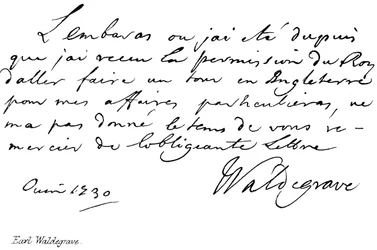 L'embaras ou jai eté dupuis
que jai receu la permission du Roy
d'aller faire un tour en Engleterre
pour mes affaires particulieres, ne
ma pas donné le tems de vous re-
mercier de lobligeante Lettre
1730
Waldegrave
Earl Waldegrave.